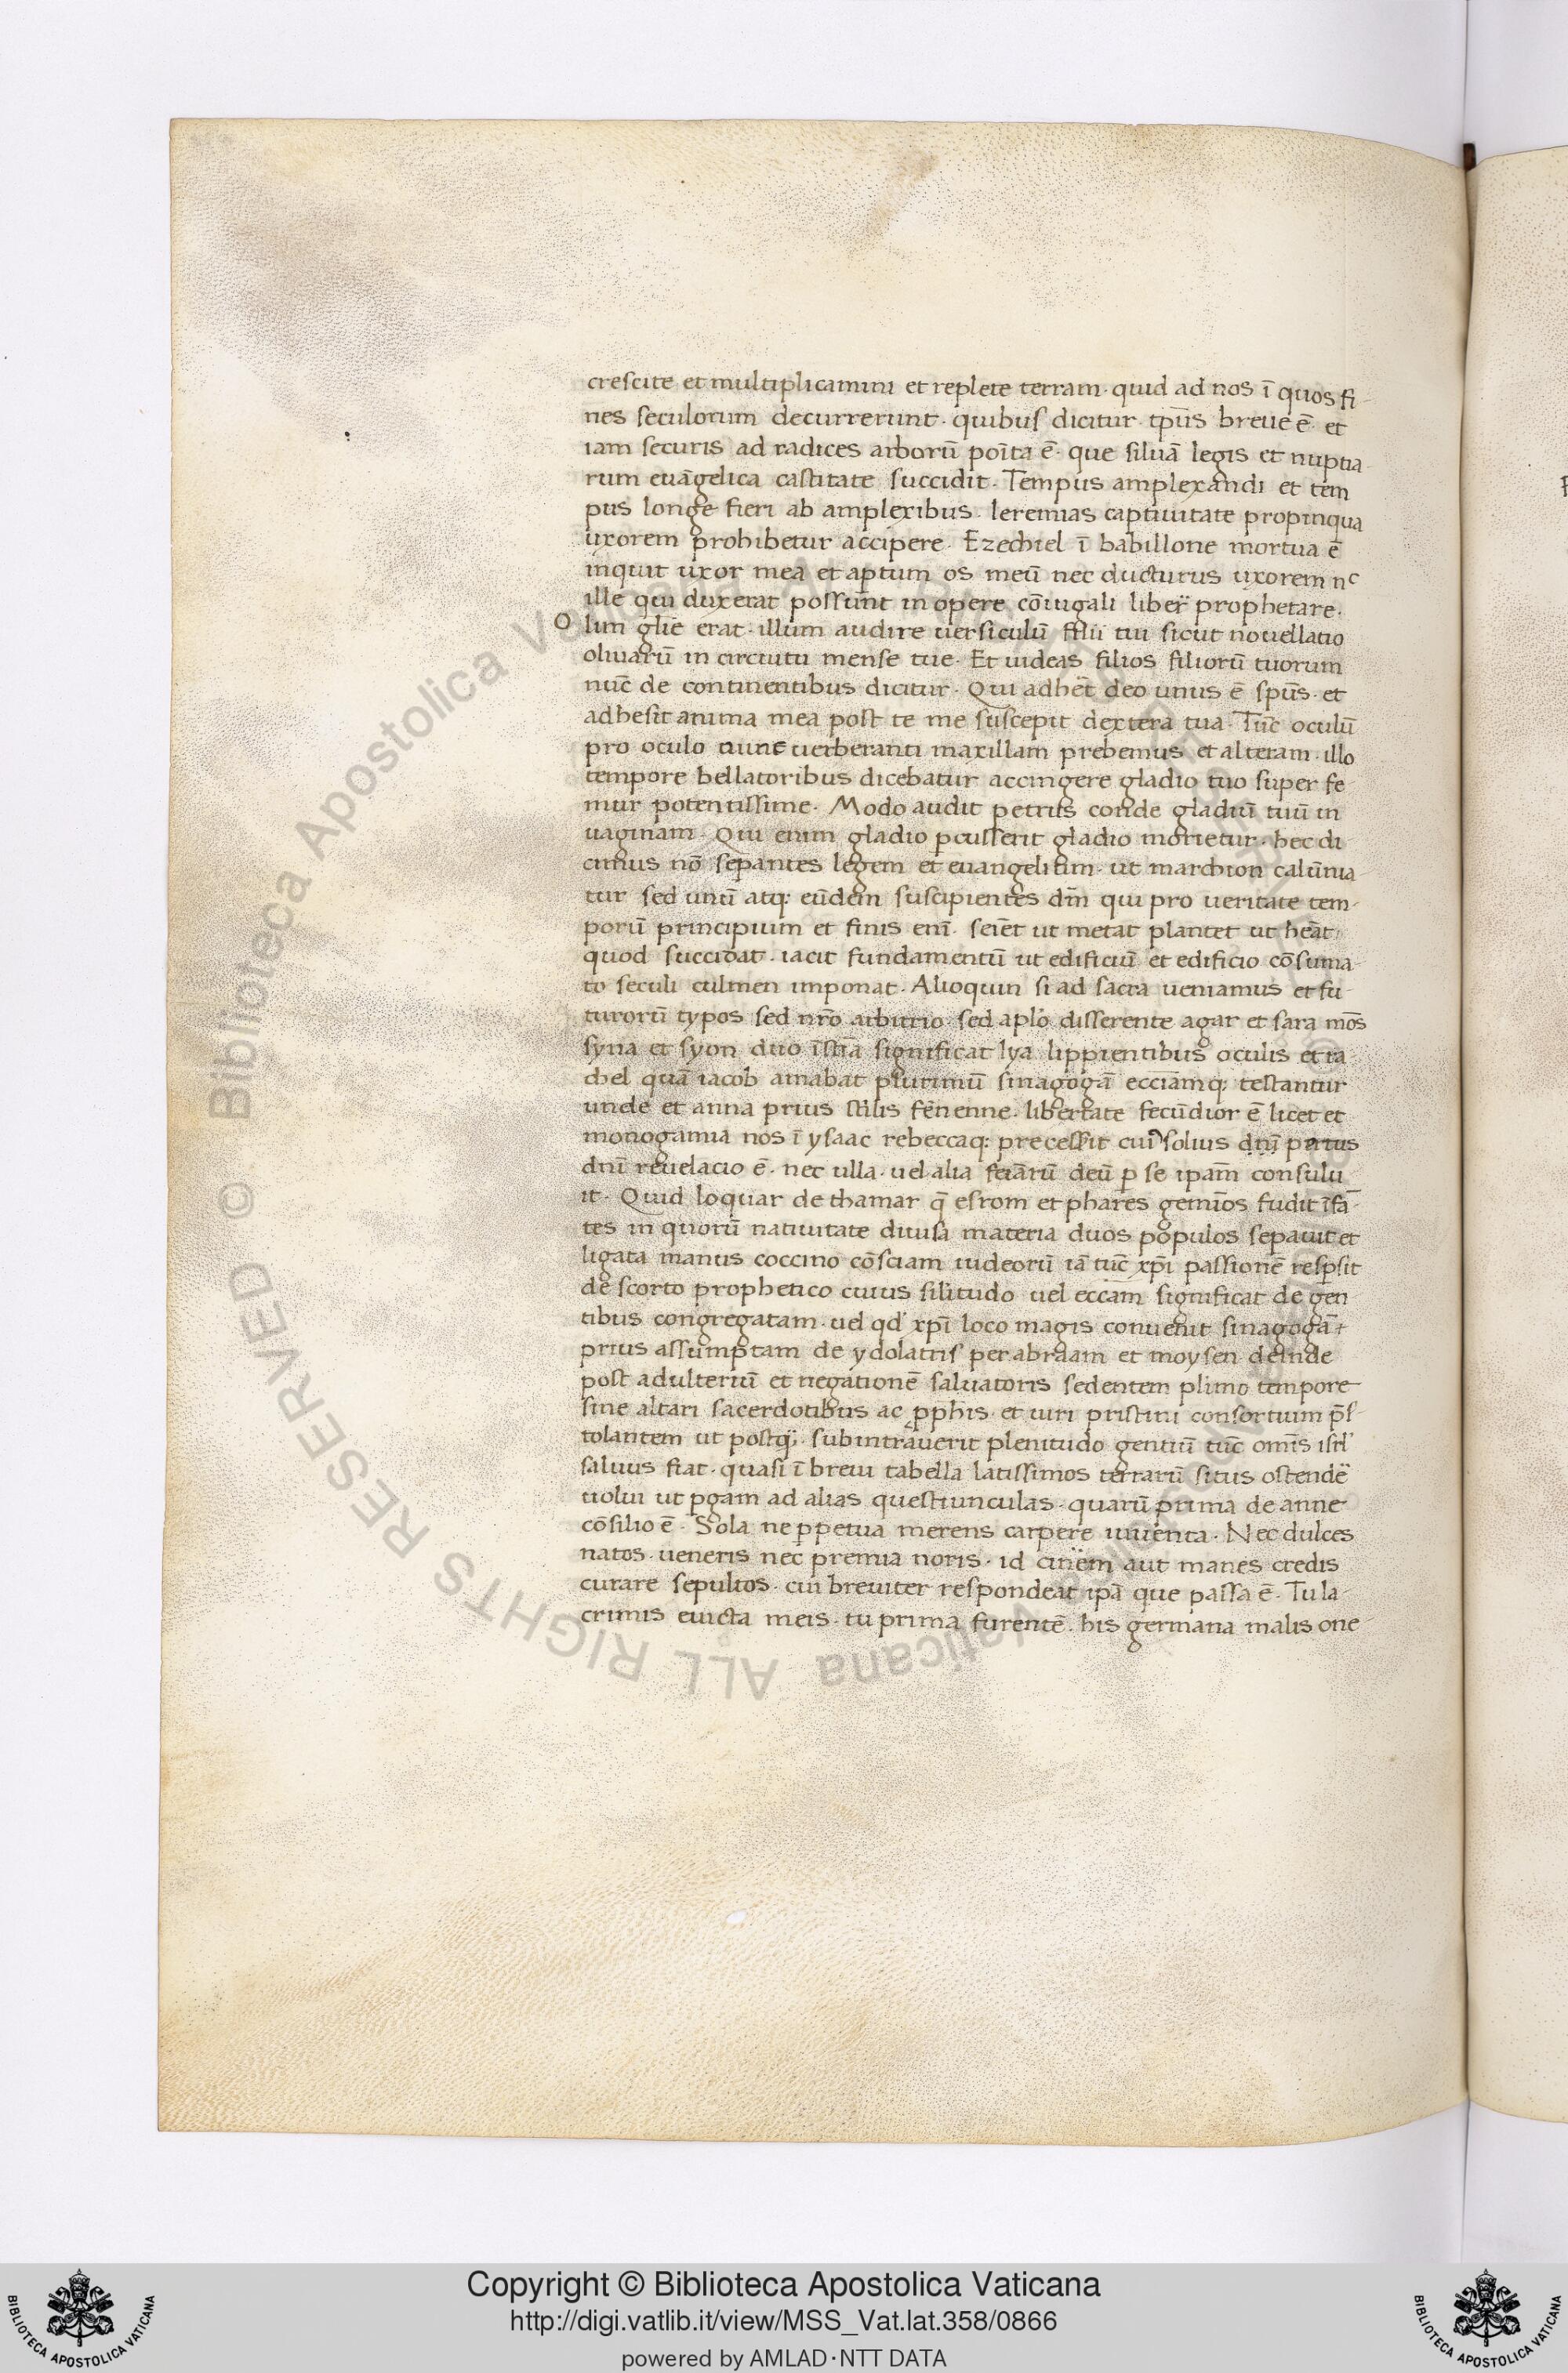 crescite et multiplicamini et replete terram· quid ad nos ī quos fi-
nes seculorum decurrerunt· quibus dicitur· tp̄us breue ē· et
iam securis ad radices arborū poīta ē· que siluā legis et nuptia-
rum euāgelica castitate succidit· Tempus amplexandi et tem
pus longe fieri ab amplexibus· Ieremias captiuitate propinqua
uxorem prohibetur accipere· Ezechiel ī babillone mortua ē
inquit uxor mea et aptum os meū nec ducturus uxorem nc
ille qui duxerat possunt in opere cōiugali liber̄ prophetare·
Olim glīe erat· illum audire uersiculū filii tui sicut nouellatio
oliuarū in circuitu mense tue· Et uideas filios filiorū tuorum
nūc de continentibus dicitur· Qui adhēt deo unus ē spūs· et
adhesit anima mea post te me suscepit dextera tua· Tūc oculū
pro oculo nunc uerberanti maxillam prebemus et alteram· illo
tempore bellatoribus dicebatur accingere gladio tuo super fe
mur potentissime· Modo audit petrus conde gladiū tuū in
uaginam· Qui enim gladio pcusserit gladio morietur· hec di
cimus nō sepantes legem et euangelium· ut marchion calūnia
tur sed unū atq: eūdem suscipientes dm̄ qui pro ueritate tem-
porū principium et finis enī· seiēt ut metat plantet ut heāt
quod succidat· iacit fundamentū ut edificiū et edificio cōsuma-
to seculi culmen imponat· Alioquin si ad sacra ueniamus et fu-
turorū typos sed nrō arbitrio· sed aplō disserente agar et sara mōs
syna et syon duo īstīa significat lya lippientibus oculis et ra
chel quā iacob amabat plurimū sinagogā ecciāmq; testantur
unde et anna prius stilis fēnenne· libertate fecūdior ē licet et
monogamia nos ī ysaac rebeccaq: precessit cui solius dnī partus
dnī reuelacio ē· nec ulla· uel alia feiārū deū p se ipam̄ consulu
it· Quid loquar de thamar q̄ esrom et phares gemīos fudit īfā-
tes in quorū natiuitate diuisa materia duos populos sepauit et
ligata manus coccino cōsciam iudeorū iā tūc xp̄i passionē respsit
de scorto prophetico cuius silitudo uel eccām significat de gen
tibus congregatam· uel qd' xp̄i loco magis conuenit sinagogā
prius assumptam de ydolatris per abraam et moysen deinde
post adulteriū et negationē saluatoris sedentem plimo tempore
sine altari sacerdotibus ac pphis· et uiri pristini consortium p̄s-
tolantem ut postq;· subintrauerit plenitudo gentiū tūc omīs isrl'
saluus fiat· quasi ī breui tabella latissimos terrarū situs ostende
uolui ut pgam ad alias questiunculas· quarū prima de anne
cōsilio ē· Sola ne ppetua merens carpere iuuenta· Nec dulces
natos· ueneris nec premia noris· id cinēm aut manes credis
curare sepultos· cui breuiter respondeat ipā que passa ē· Tu la-
crimis euicta meis· tu prima furentē· his germana malis one
Copyright © Biblioteca Apostolica Vaticana
http://digi.vatlib.it/view/MSS_Vat.lat.358/0866
powered by AMLAD·NTT DATA
BIBLIOTECA APOSTOLICA VATICANA
BIBLIOTECA APOSTOLICA VATICANA
© Biblioteca Apostolica Vaticana ALL RIGHTS RESERVED